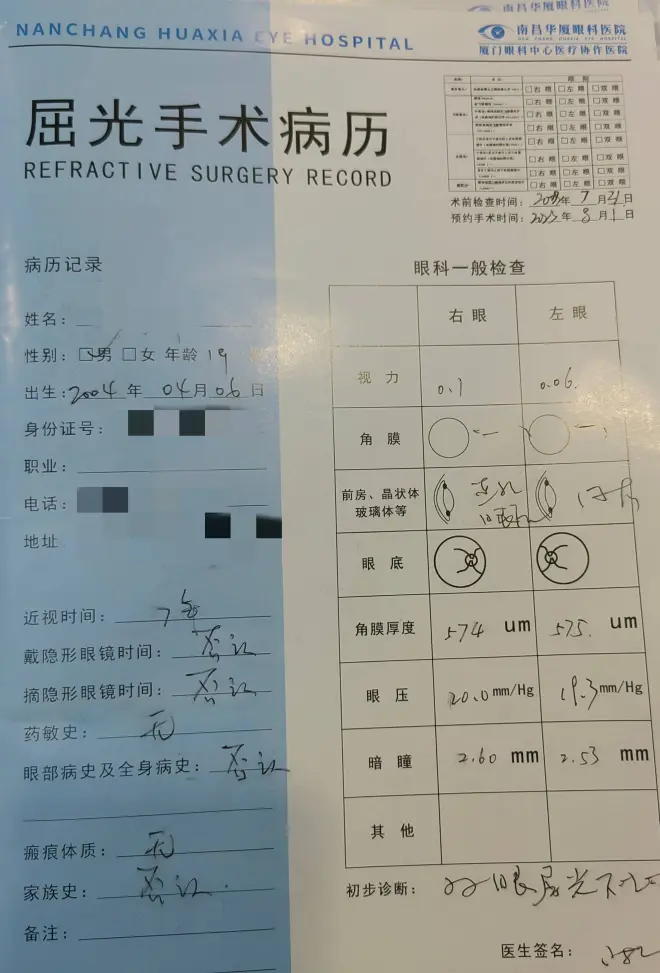 南昌华厦眼科医院
NANCHANG HUAXIA EYE HOSPITAL
南昌华厦眼科医院
NAN CHANG HUAXIA EYE HOSPITAL
厦门眼科中心医疗协作医院
屈光手术病历
REFRACTIVE SURGERY RECORD
眼别
□右眼 □左眼 □双眼
□右眼 □左眼 □双眼
□右眼 □左眼 □双眼
□右眼 □左眼 □双眼
□右眼 □左眼 □双眼
□右眼 □左眼 □双眼
□右眼 □左眼 □双眼
□右眼 □左眼 □双眼
术前检查时间: 2023年 7月21日
预约手术时间: 2023年 8月1日
病历记录
姓名:
性别: ☑男 □女 年龄 19
出生: 2004年 04月06日
身份证号:
职业:
电话:
地址
近视时间: 7年
戴隐形眼镜时间: 否认
摘隐形眼镜时间: 否认
药敏史: 无
眼部病史及全身病史: 否认
瘢痕体质: 无
家族史: 否认.
备注:
眼科一般检查
右眼 左眼
视力 0.1 0.06.
角膜
前房、晶状体
玻璃体等
眼底
角膜厚度 574 um 575. um
眼压 20.0 mm/Hg 19.3 mm/Hg
暗瞳 2.60 mm 2.53 mm
其他
初步诊断: 双眼屈光不正
医生签名: